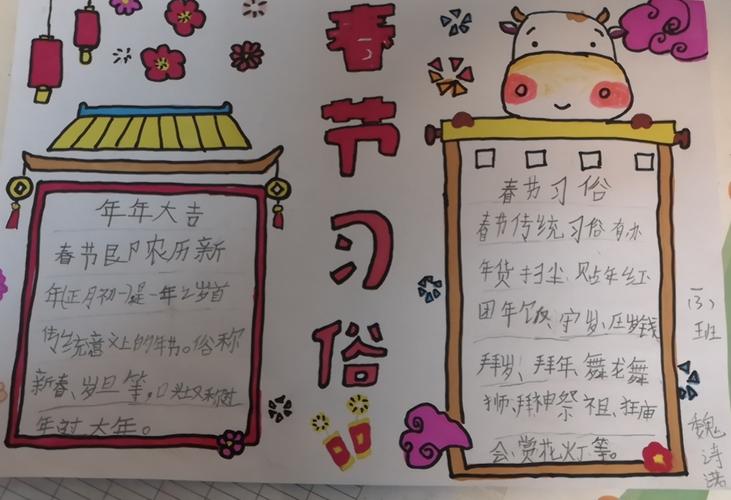 春节习俗
年年大吉
春节即农历新
年(正月初一)是一年之岁首
传统意义上的年节。俗称
新春、岁旦等,口头又称过
年过大年。
春节习俗
春节传统习俗有办
年货扫尘、贴年红
团年饭、守岁、压岁钱
拜岁、拜年、舞龙舞
狮、拜神祭祖、逛庙
会、赏花灯等。
(3)班
魏诗诺